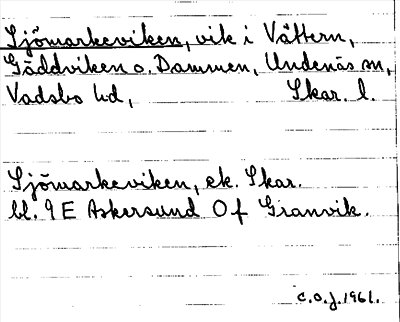 Sjömarkeviken, vik i Vättern,
Gäddviken o. Dammen, Undenäs sn,
Vadsbo hd, Skar. l.
Sjömarkeviken, ek. Skar.
bl. 9 E Askersund 0 f Granvik.
C.O.J. 1961.